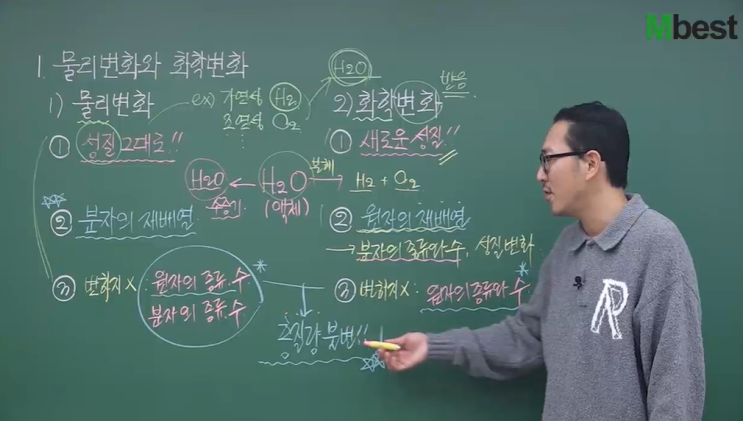 Mbest
1. 물리변화와 화학변화
1) 물리변화
ex) 가연성 H2
조연성 O2
H2O
① 성질 그대로!!
H2O ← H2O 분해 → H2 + O2
수증기 (액체)
② 분자의 재배열
③ 변하지 X : 원자의 종류.수
분자의 종류.수
총질량 불변!!
2) 화학변화 반응
① 새로운 성질!!
② 원자의 재배열
→ 분자의 종류와 수, 성질변화
③ 변하지 X : 원자의 종류와 수
R